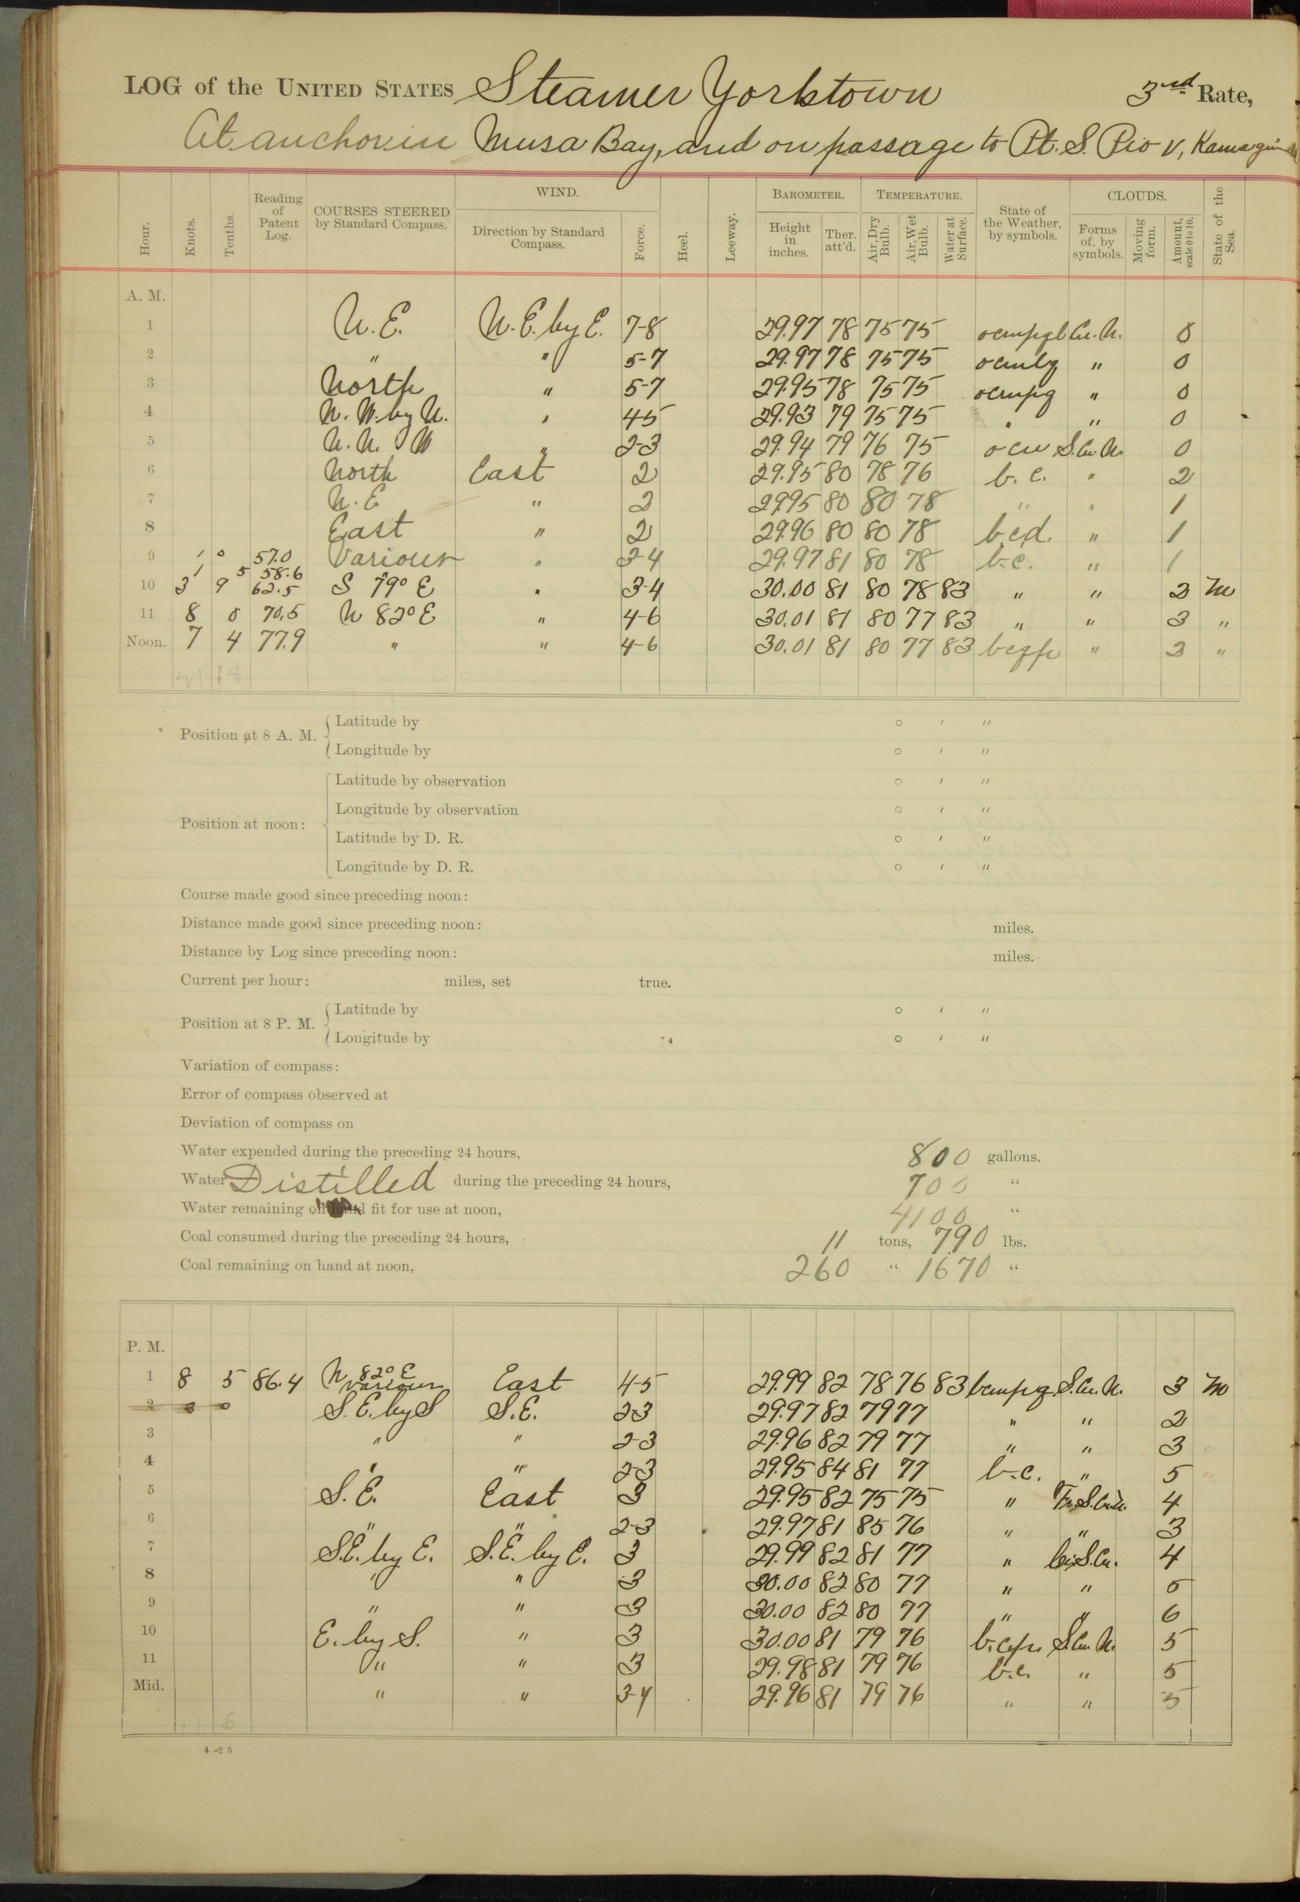 LOG of the UNITED STATES Steamer Yorktown 3rd Rate,
At anchor in Musa Bay, and on passage to Pt. S. Pio V, Kamaguin
Hour. Knots. Tenths. Reading of Patent Log. COURSES STEERED by Standard Compass. WIND. Direction by Standard Compass. Force. Heel. Leeway. BAROMETER. Height in inches. Ther. att'd. TEMPERATURE. Air, Dry Bulb. Air, Wet Bulb. Water at Surface. State of the Weather, by symbols. CLOUDS. Forms of, by symbols. Moving form. Amount, scale 0 to 10. State of the Sea.
A. M.
1 N. E. N. E. by E. 7-8 29.97 78 75 75 ocmpql Cu. N. 0
2 " " 5-7 29.97 78 75 75 ocmlq " 0
3 North " 5-7 29.95 78 75 75 ocmpq " 0
4 N. W. by N. " 4-5 29.93 79 75 75 " " 0
5 N. N. W " 2-3 29.94 79 76 75 ocm S. Cu. N. 0
6 North East 2 29.95 80 78 76 b. c. " 2
7 N. E " 2 29.95 80 80 78 " " 1
8 East " 2 29.96 80 80 78 bcd. " 1
9 1 0 57.0 Various " 3-4 29.97 81 80 78 b.c. " 1
1 5 58.6
10 3 9 62.5 S 79° E " 3-4 30.00 81 80 78 83 " " 2 M
11 8 0 70.5 N 82° E " 4-6 30.01 81 80 77 83 " " 3 "
Noon. 7 4 77.9 " " 4-6 30.01 81 80 77 83 bcqp " 3 "
21 18
Position at 8 A. M. Latitude by ° ' "
Longitude by ° ' "
Position at noon: Latitude by observation ° ' "
Longitude by observation ° ' "
Latitude by D. R. ° ' "
Longitude by D. R. ° ' "
Course made good since preceding noon:
Distance made good since preceding noon: miles.
Distance by Log since preceding noon: miles.
Current per hour: miles, set true.
Position at 8 P. M. Latitude by ° ' "
Longitude by ° ' "
Variation of compass:
Error of compass observed at
Deviation of compass on
Water expended during the preceding 24 hours, 800 gallons.
Water Distilled during the preceding 24 hours, 700 "
Water remaining on hand fit for use at noon, 4100 "
Coal consumed during the preceding 24 hours, 11 tons, 790 lbs.
Coal remaining on hand at noon, 260 " 1670 "
P. M.
1 8 5 86.4 N 82° E Various East 4-5 29.99 82 78 76 83 bcmpq S. Cu. N. 3 M
2 S. E. by S S. E. 2-3 29.97 82 79 77 " " 2
3 " " 2-3 29.96 82 79 77 " " 3
4 " " 2-3 29.95 84 81 77 b.c. " 5
5 S. E. East 3 29.95 82 75 75 " S. Cu. 4
6 " " 2-3 29.97 81 85 76 " " 3
7 S.E. by E. S. E. by E. 3 29.99 82 81 77 " S. Cu. 4
8 " " 3 30.00 82 80 77 " " 5
9 " " 3 30.00 82 80 77 " " 6
10 E. by S. " 3 30.00 81 79 76 b.c.p. S. Cu. N. 5
11 " " 3 29.98 81 79 76 b.c. " 5
Mid. " " 3-4 29.96 81 79 76 " " 5
4-25